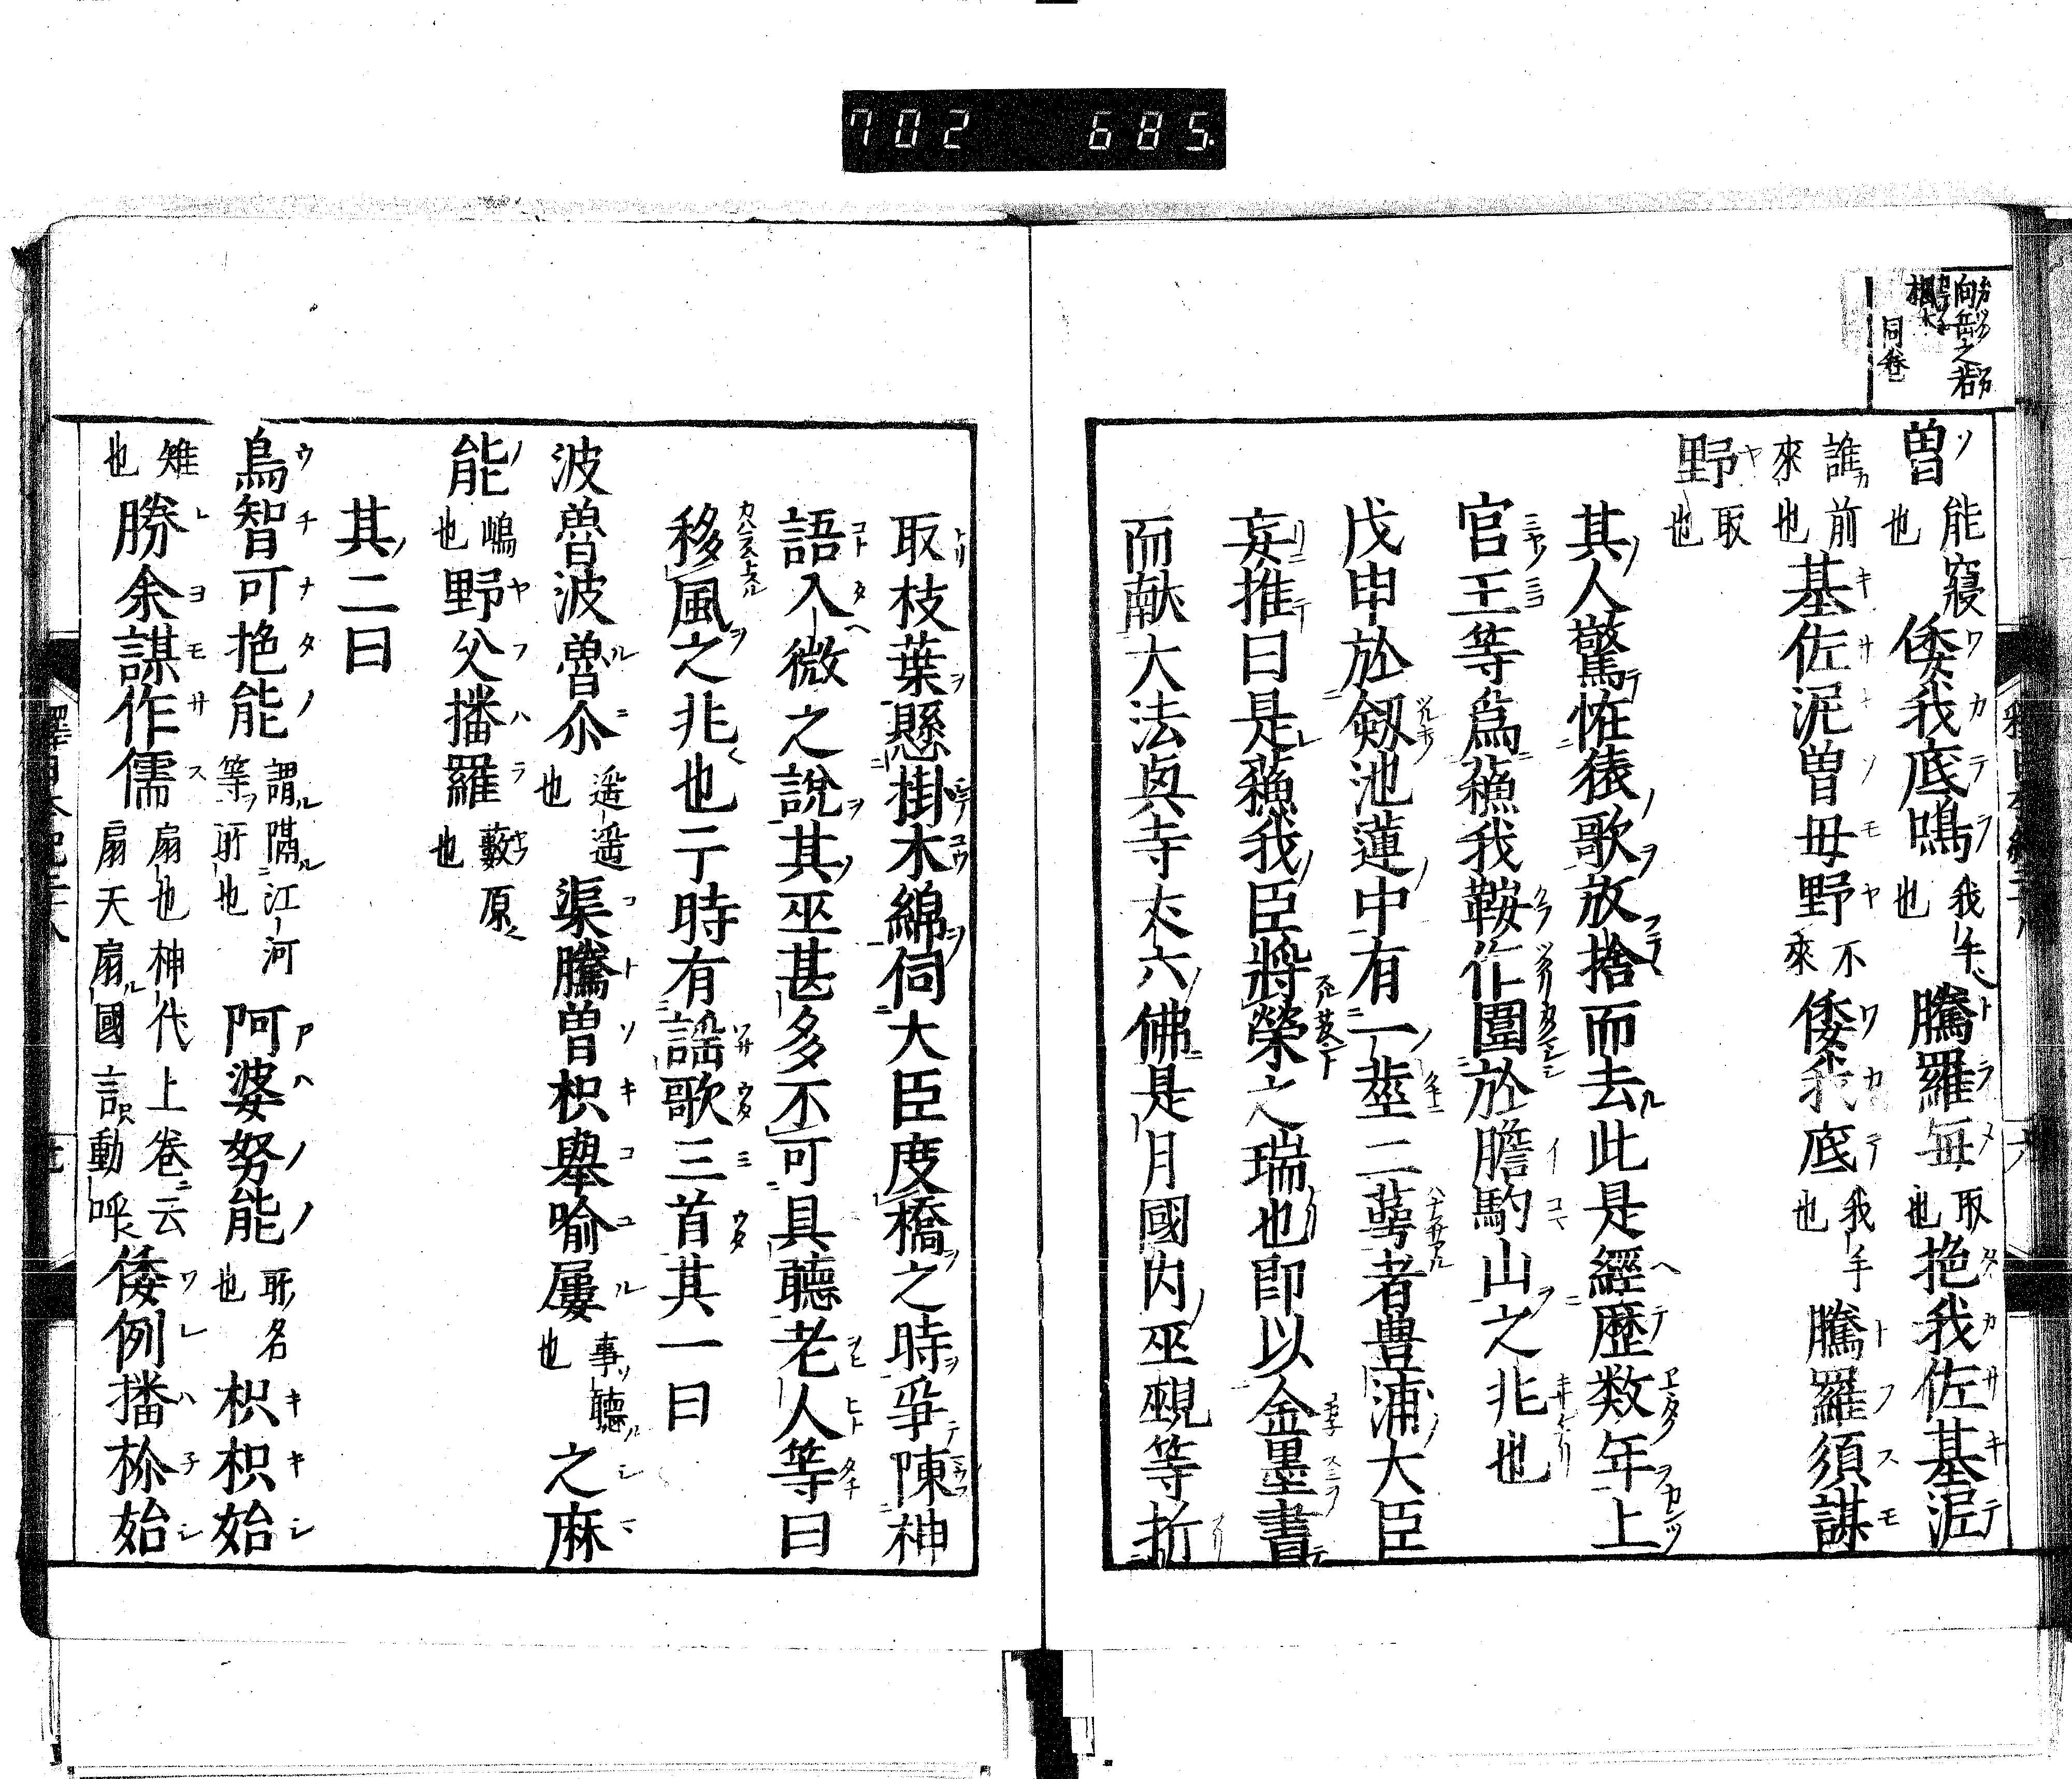 702 685
向岳之
同卷
曽能寢也倭我底鳴我手也騰羅毎取也挹我佐基泥
誰前來也基佐泥曽母野不來倭我底我手也騰羅須謀
野取也
其人驚恠猿歌放捨而去此是經歷数年上
官王等爲蘓我鞍作圍於膽駒山之兆也
戊申於剱池蓮中有一莖二萼者豊浦大臣
妄推曰是蘓我臣將榮之瑞也即以金墨書
而献大法興寺丈六佛是月國内巫覡等折
取枝葉懸掛木綿伺大臣度橋之時爭陳神
語入微之說其巫甚多不可具聽老人等曰
移風之兆也于時有謡歌三首其一曰
波魯波魯尒遥遥也渠騰曽枳舉喻屢事聽也之麻
能嶋也野父播羅藪原也
其二曰
烏智可挹能謂隔江河等所也阿婆努能所名也枳枳始
雉也騰余謀作儒扇也神代上卷云扇天扇國言動呼倭例播祢始